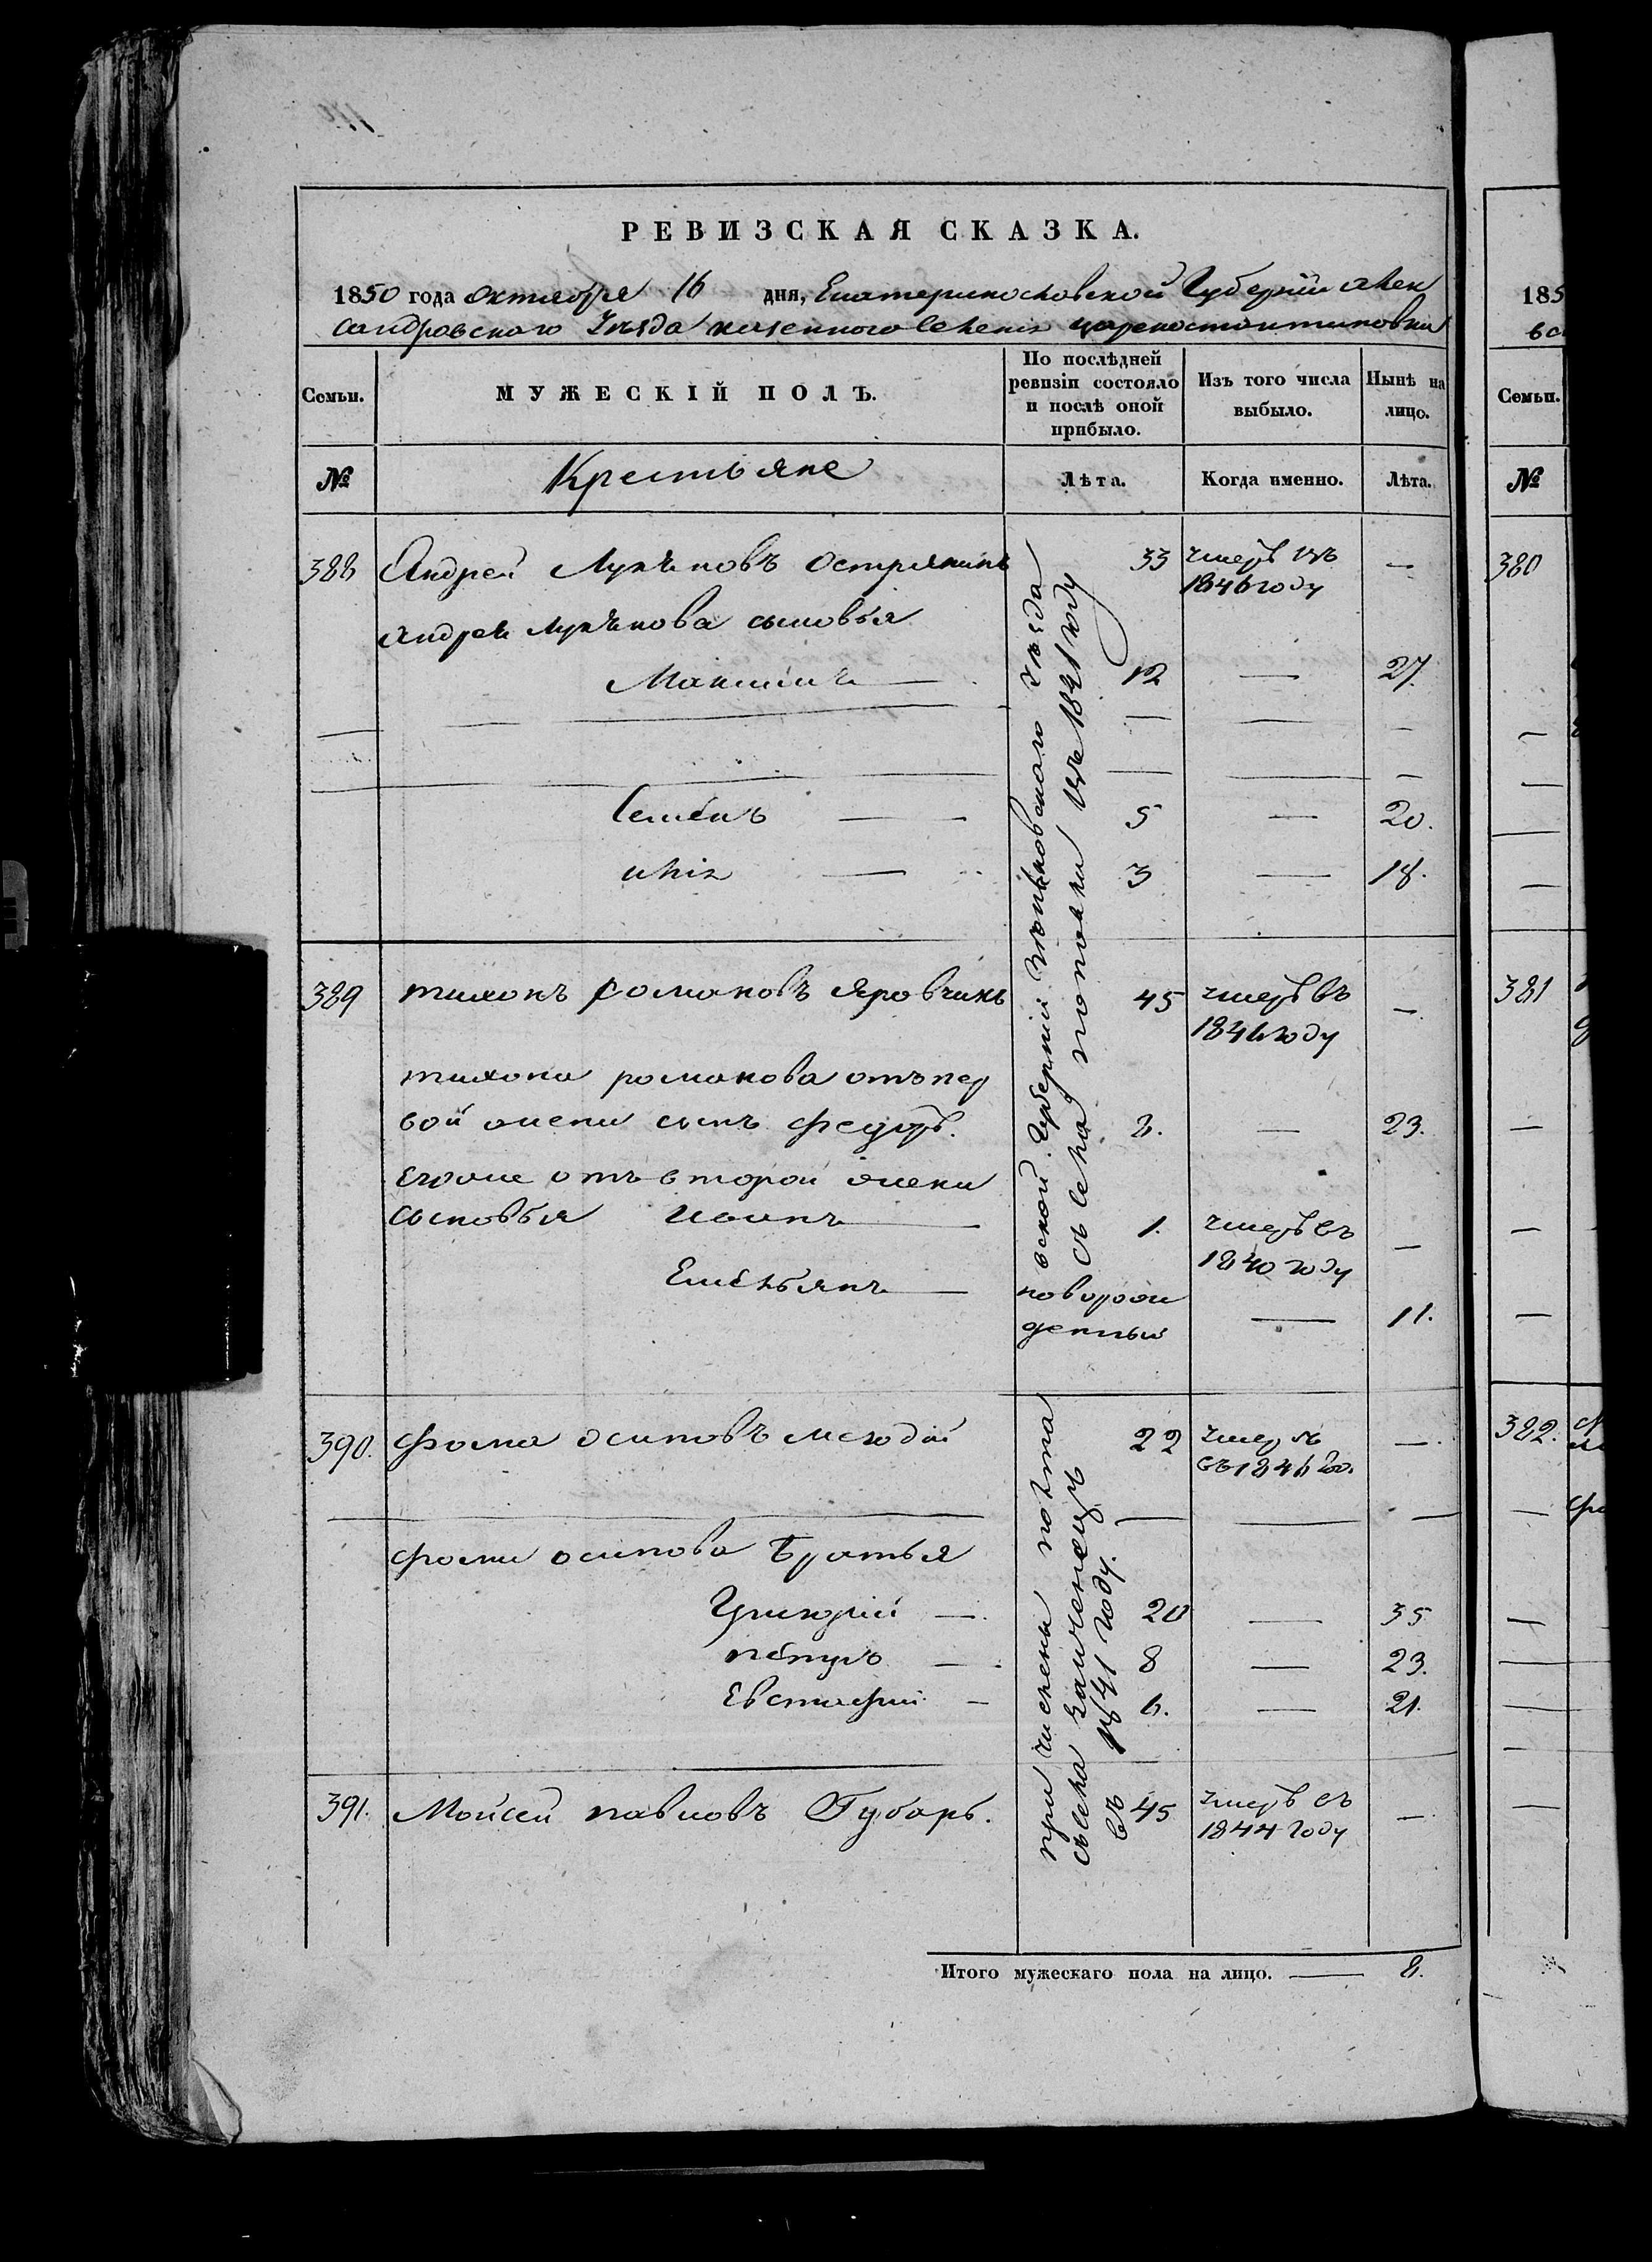 РЕВИЗСКАЯ СКАЗКА.
1850 года Октября 16 дня, Екатеринославской Губерніи алек
сандровскаго Уезда казенного селенія цареконстантиновки
Семьи.
МУЖЕСКІЙ ПОЛЪ.
По послѣдней
ревизіи состояло
и послѣ оной
прибыло.
Изъ того числа
выбыло.
Нынѣ на
лицо.
№
Крестьяне
Лѣта.
Когда именно.
Лѣта.
388 Андрей Лукъяновъ Острянинъ 33 умеръ въ —
1846 году
Андрея лукъянова сыновья
Максимъ — 12 — 27.
Семенъ — 5 — 20.
илія — 3 — 18.
389 тихонъ романовъ Яровчинъ 45 умеръ въ —
1846 году
тихона романова отъ пер
вой жены сынъ федоръ. 8. — 23.
Егоже отъ второй жены
сыновья иванъ — 1. умеръ въ —
1840 году
Емельянъ — новорож
денный — 11.
вской Губерніи уезда
съ села поповки въ 1841 году
390. фома осиповъ 22 умеръ —
въ 1846 го.
фомы осипова братья
Григорій — 20 — 35
петръ — 8 — 23.
Евстафій — 6. — 21.
391. Мойсей павловъ Губарь. 45 умеръ въ —
1844 году
причислены полта
съ села
въ 1841 году.
Итого мужескаго пола на лицо. — 8.
185
вс
Семьи.
№
380
381
382.